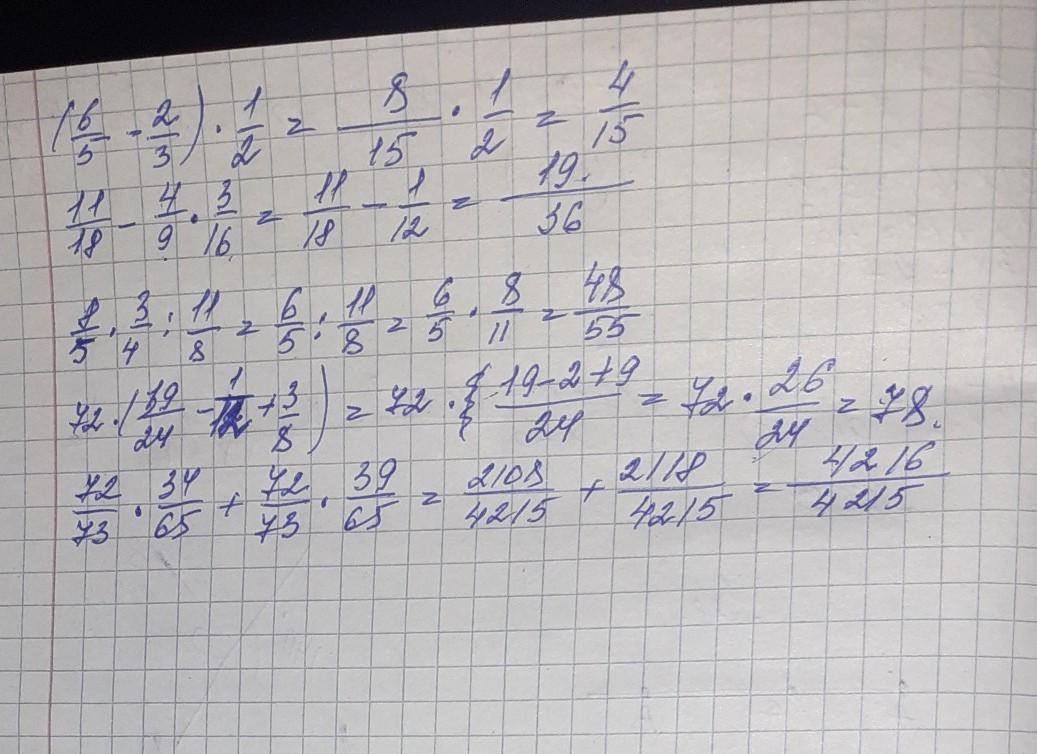 (6/5 - 2/3) · 1/2 = 8/15 · 1/2 = 4/15
11/18 - 4/9 · 3/16 = 11/18 - 1/12 = 19/36
8/5 · 3/4 : 11/8 = 6/5 : 11/8 = 6/5 · 8/11 = 48/55
72 · (19/24 - 1/12 + 3/8) = 72 · (19-2+9)/24 = 72 · 26/24 = 78.
72/73 · 34/65 + 72/73 · 39/65 = 2108/4215 + 2118/4215 = 4216/4215